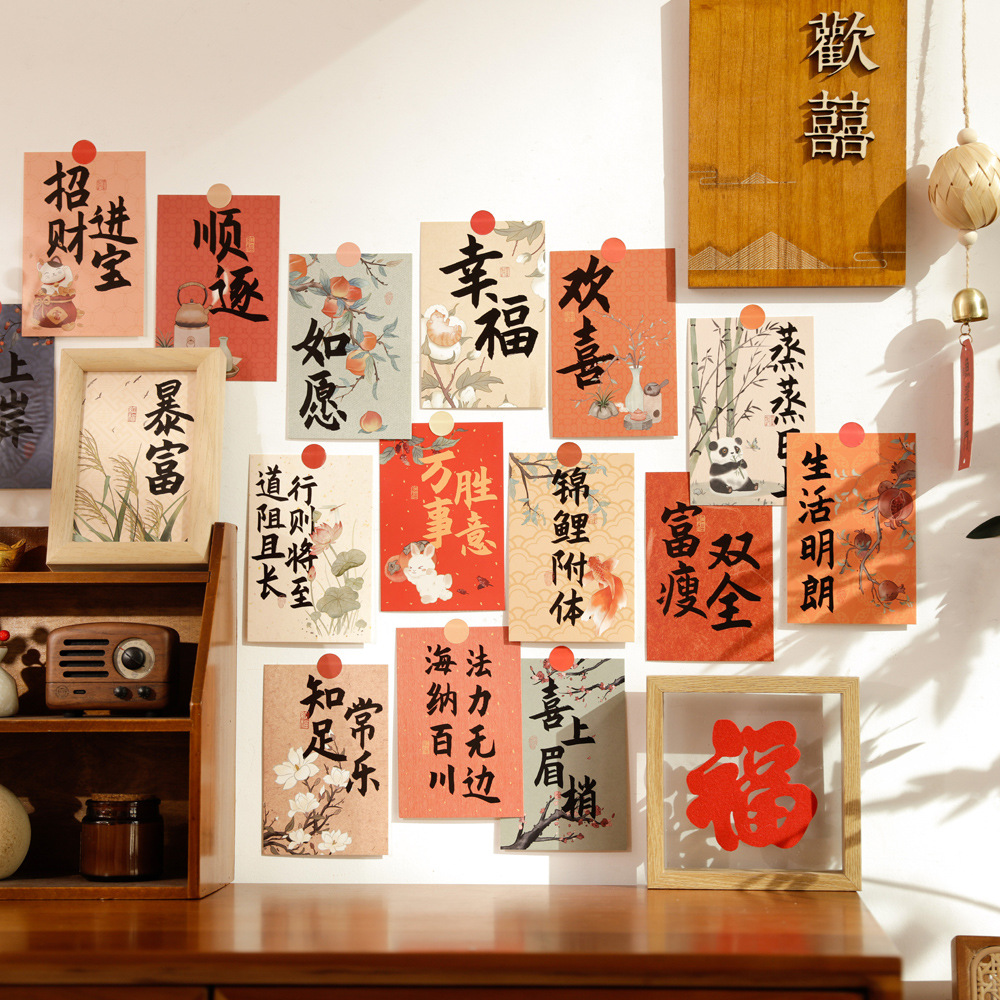 歡
囍
招财
进宝
顺
逐
如
愿
幸
福
欢
喜
蒸蒸日
上
岸
暴
富
道阻且长
行则将至
万事
胜意
锦鲤附体
富瘦
双全
生活明朗
知足
常乐
海纳百川
法力无边
喜上
眉梢
福